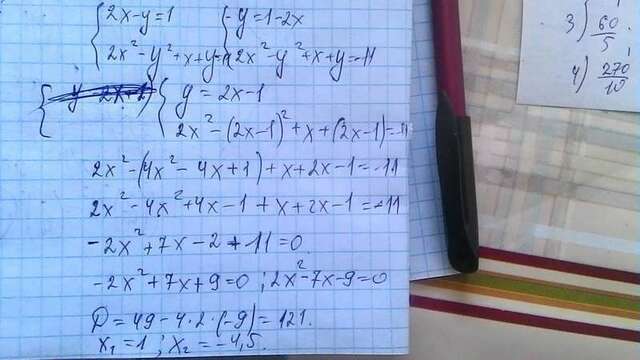 {2x-y=1 {-y=1-2x
2x²-y²+x+y=-11 2x²-y²+x+y=-11
{ {y=2x-1
2x²-(2x-1)²+x+(2x-1)=-11
2x²-(4x²-4x+1)+x+2x-1=-11
2x²-4x²+4x-1+x+2x-1=-11
-2x²+7x-2+11=0
-2x²+7x+9=0; 2x²-7x-9=0
D=49-4·2·(-9)=121.
x₁=1; x₂=-4,5.
3) 60/5
4) 270/10